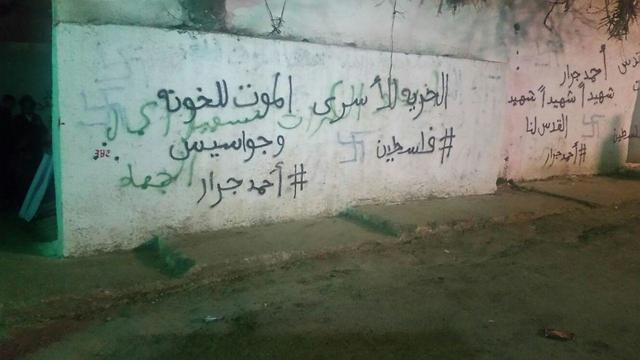 الحرية للأسرى الموت للخونه
وجواسيس
#فلسطين
#أحمد جرار
382
القدس
أحمد جرار
شهيداً شهيداً شهيد
القدس لنا
#أحمد جرار
فلسطين